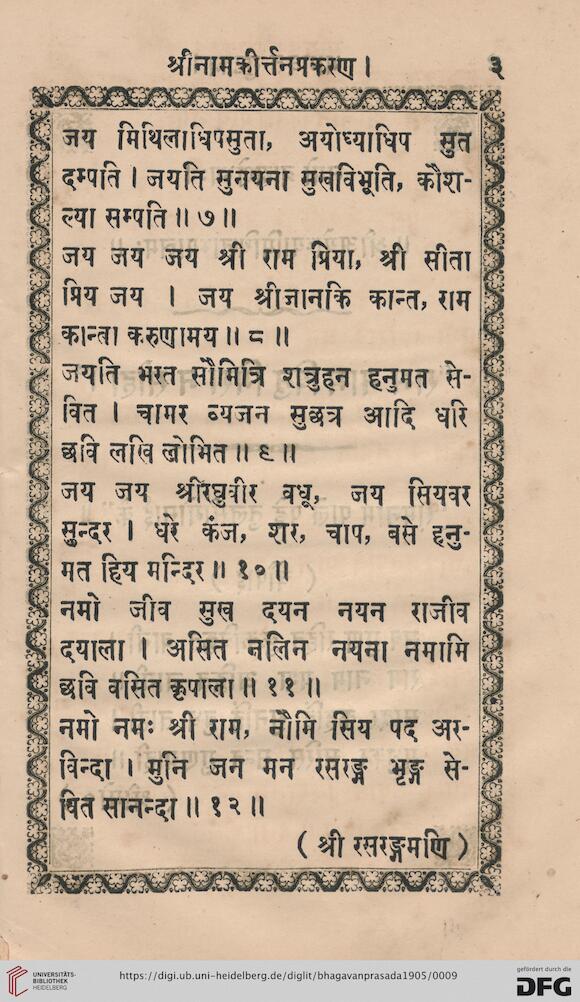 श्रीनामकीर्त्तनप्रकरण । ३
जय मिथिलाधिपसुता, अयोध्याधिप सुत
दम्पति । जयति सुनयना सुखविभूति, कौश-
ल्या सम्पति ॥ ७ ॥
जय जय जय श्री राम प्रिया, श्री सीता
प्रिय जय । जय श्रीजानकि कान्त, राम
कान्ता करुणामय ॥ ८ ॥
जयति भरत सौमित्रि शत्रुहन हनुमत से-
वित । चामर व्यजन सुछत्र आदि धरि
छवि लखि लोभित ॥ ९ ॥
जय जय श्रीरघुवीर वधू, जय सियवर
सुन्दर । धरे कंज, शर, चाप, बसे हनु-
मत हिय मन्दिर ॥ १० ॥
नमो जीव सुख दयन नयन राजीव
दयाला । असित नलिन नयना नमामि
छवि वसित कृपाला ॥ ११ ॥
नमो नमः श्री राम, नौमि सिय पद अर-
विन्दा । मुनि जन मन रसरङ्ग भृङ्ग से-
षित सानन्दा ॥ १२ ॥
( श्री रसरङ्गमणि )
UNIVERSITÄTS-
BIBLIOTHEK
HEIDELBERG
https://digi.ub.uni-heidelberg.de/diglit/bhagavanprasada1905/0009
gefördert durch die
DFG